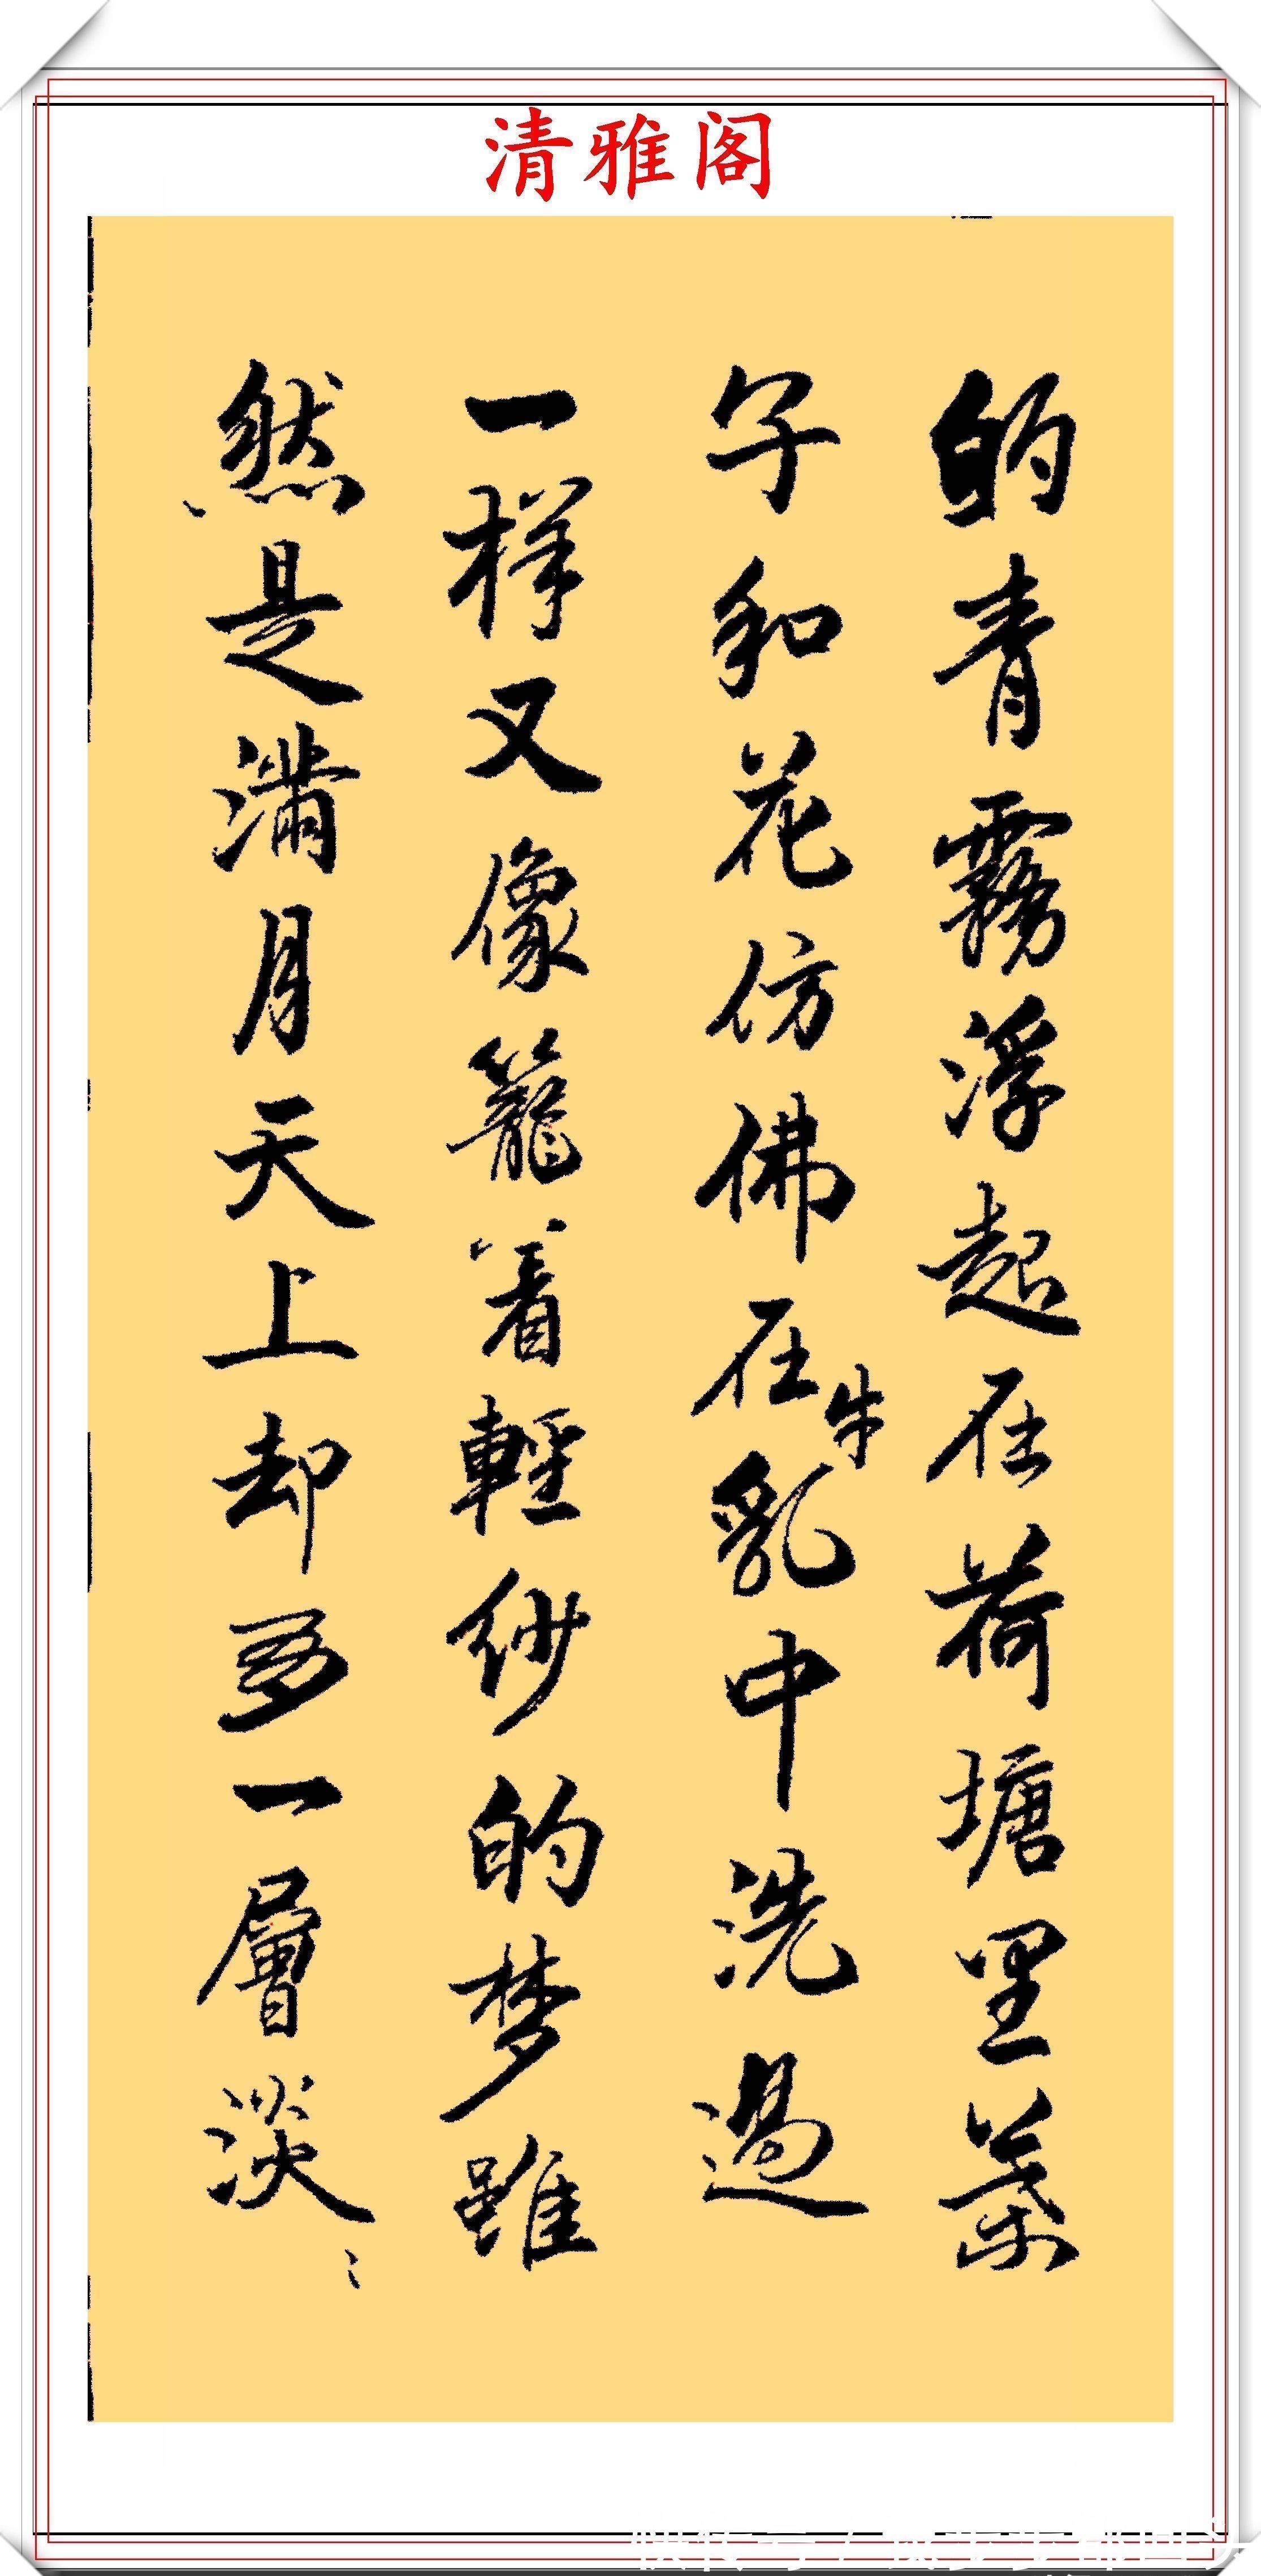 清雅阁
的青霧浮起在荷塘里葉
子和花仿佛在牛乳中洗過
一样又像籠着輕纱的梦雖
然是满月天上却多一層淡